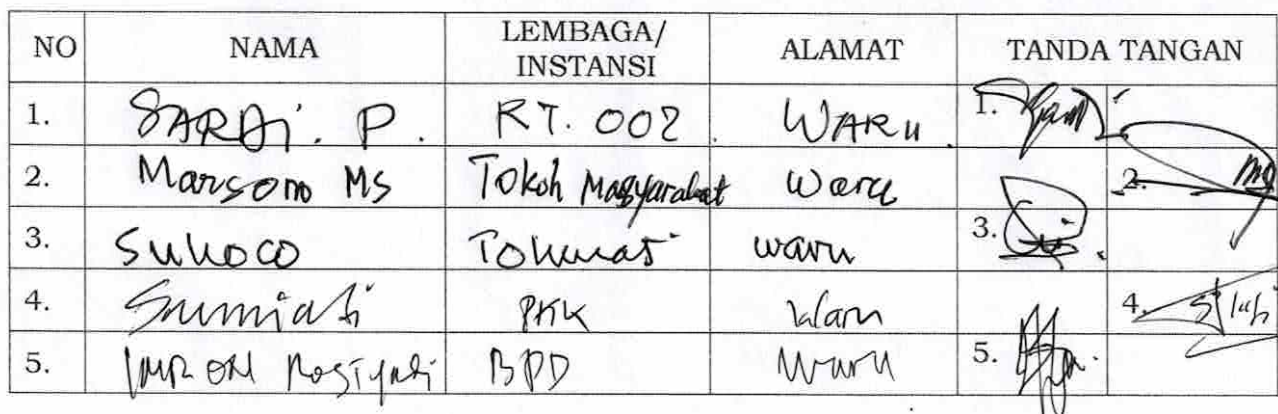 NO NAMA LEMBAGA/ INSTANSI ALAMAT TANDA TANGAN
1. SARDi. P. RT. 002. WARU. 1.
2. Marsono MS Tokoh Masyarakat Waru 2. MS
3. Sukoco Tokmas waru 3.
4. Sumiati PKK Waru 4.
5. BPD Waru 5.